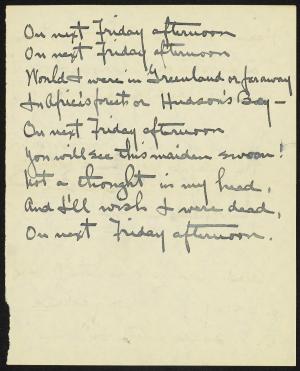 On next Friday afternoon
On next Friday afternoon
Would I were in Greenland or far away
In Afric's forets or Hudson's Bay —
On next Friday afternoon
You will see this maiden swoon!
Not a thought in my head,
And I'll wish I were dead,
On next Friday afternoon.